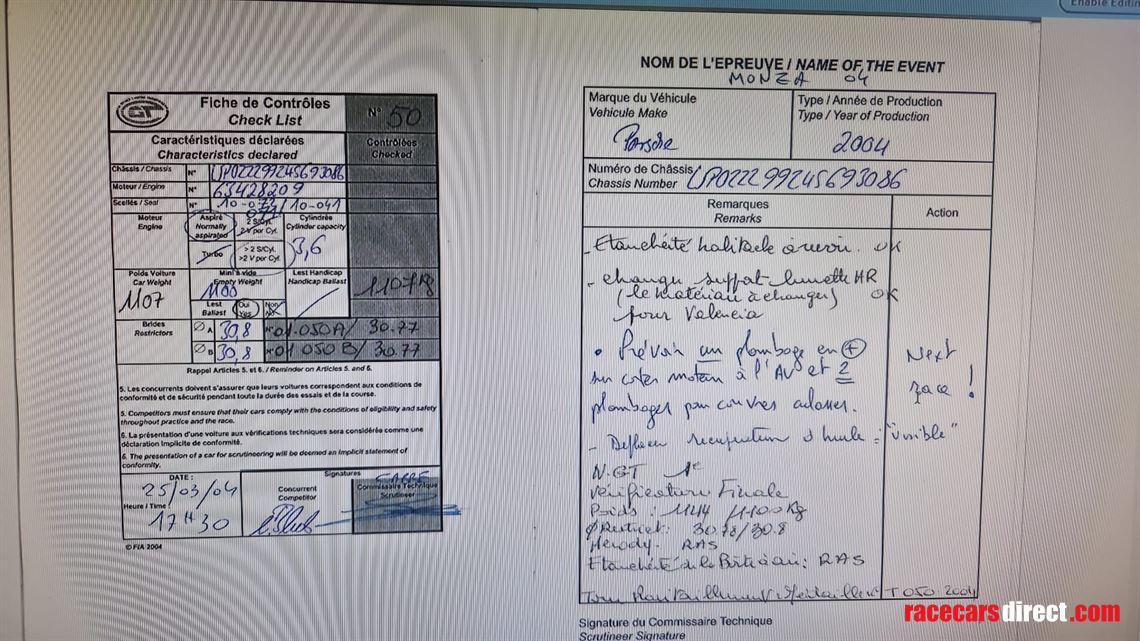 Enable Editin
GT
Fiche de Contrôles
Check List
N° 50
Caractéristiques déclarées
Characteristics declared
Contrôlées
Checked
Châssis / Chassis N°
Moteur / Engine N° 63428209
Scellés / Seal N° 10-041
Moteur
Engine
Aspiré
Normally
aspirated
2 S/Cyl.
2 V per Cyl.
Cylindrée
Cylinder capacity
3,6
Turbo
> 2 S/Cyl.
>2 V per Cyl.
Poids Voiture
Car Weight
1107
Mini à vide
Empty Weight
1100
Lest Handicap
Handicap Ballast
1107 Kg
Lest
Ballast
Oui
Yes
Non
Brides
Restrictors
Ø A 30,8 N° 01.050A/ 30.77
Ø B 30,8 N° 01 050 B/ 30.77
Rappel Articles 5. et 6. / Reminder on Articles 5. and 6.
5. Les concurrents doivent s'assurer que leurs voitures correspondent aux conditions de
conformité et de sécurité pendant toute la durée des essais et de la course.
5. Competitors must ensure that their cars comply with the conditions of eligibility and safety
throughout practice and the race.
6. La présentation d'une voiture aux vérifications techniques sera considérée comme une
déclaration implicite de conformité.
6. The presentation of a car for scrutineering will be deemed an implicit statement of
conformity.
DATE :
25/03/04
Heure / Time :
17H30
Signatures
Concurrent
Competitor
Commissaire Technique
Scrutineer
© FIA 2004
NOM DE L'EPREUVE / NAME OF THE EVENT
MONZA 04
Marque du Véhicule
Vehicule Make
Porsche
Type / Année de Production
Type / Year of Production
2004
Numéro de Châssis
Chassis Number
Remarques
Remarks
Action
- Etanchéité habitacle à revoir. OK
- changer support lunette AR
(le matériau à changer) OK
pour Valencia
• Prévoir un plombage en +
sur cotes moteur à l'AV et 2
plombages pour
Next
race !
- récupération d'huile = "visible"
N.GT
Vérification Finale
Poids : 1144 / 1100 Kg
Ø Restrict : 30.78/30.8
RAS
Etanchéité de la Boite à air : RAS
T 050 2004
Signature du Commissaire Technique
Scrutineer Signature
racecarsdirect.com